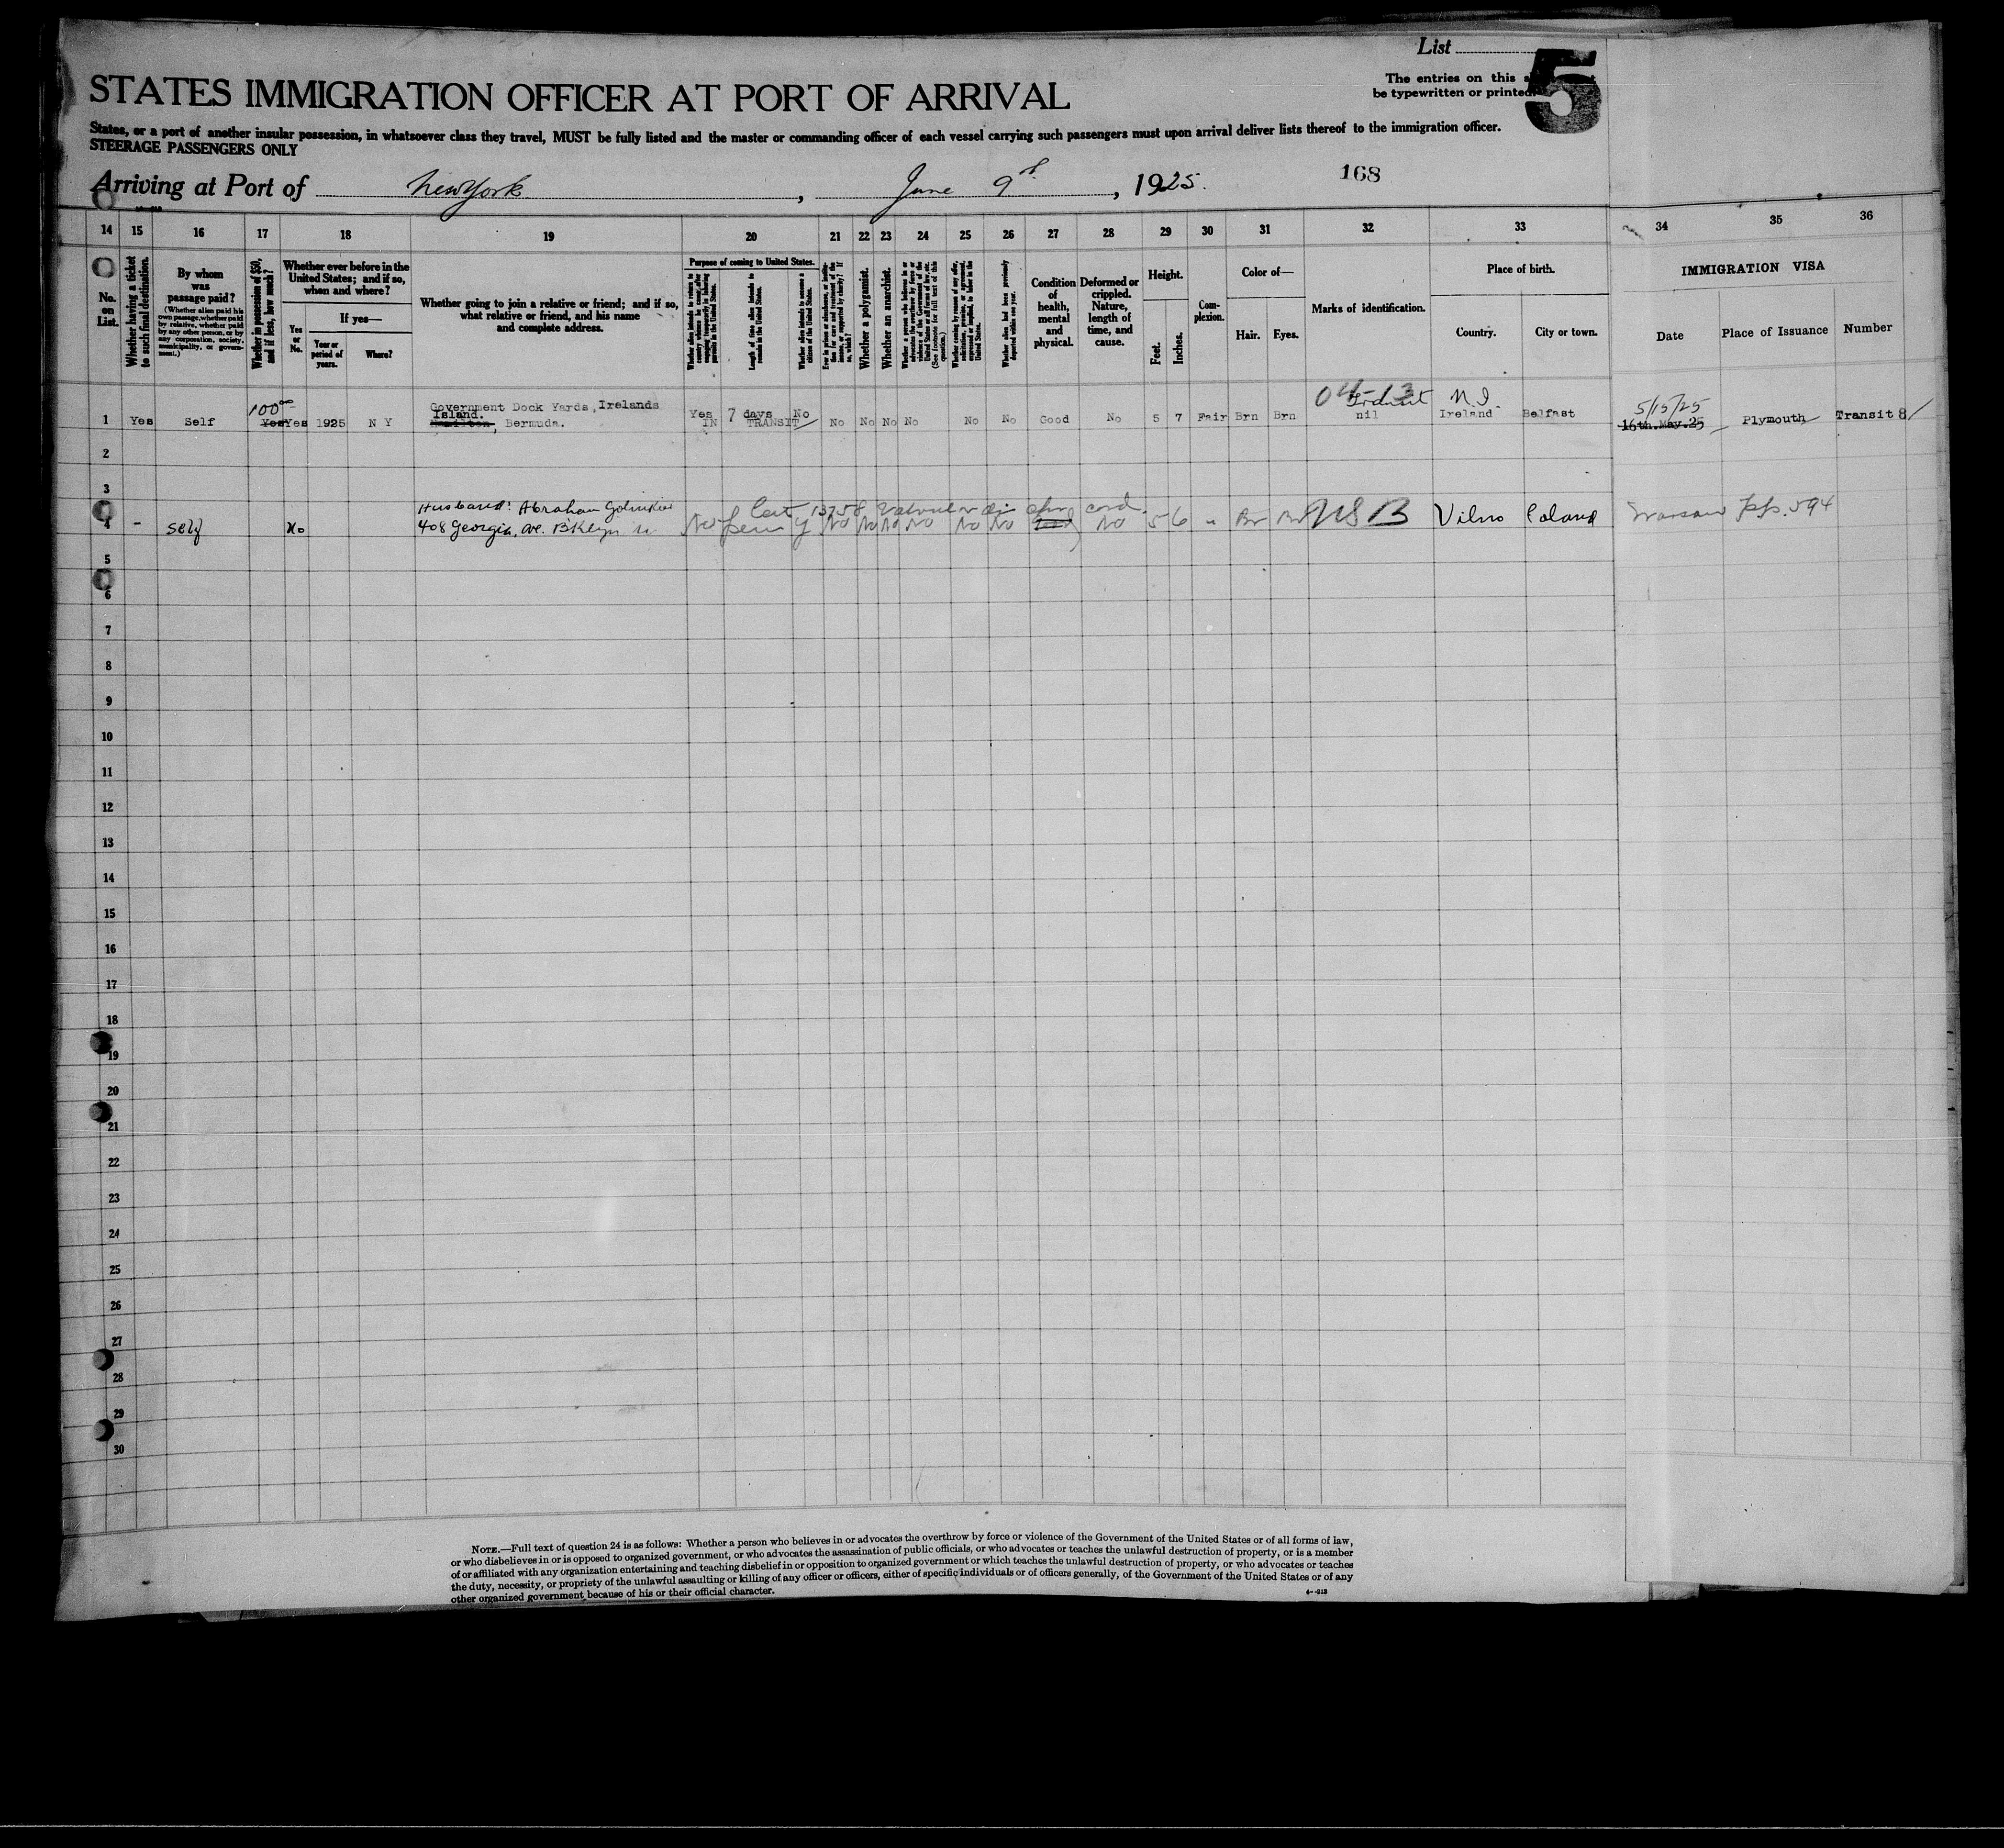 List
5
STATES IMMIGRATION OFFICER AT PORT OF ARRIVAL
The entries on this
be typewritten or printed.
States, or a port of another insular possession, in whatsoever class they travel, MUST be fully listed and the master or commanding officer of each vessel carrying such passengers must upon arrival deliver lists thereof to the immigration officer.
STEERAGE PASSENGERS ONLY
Arriving at Port of New York, June 9, 1925.
168
14 15 16 17 18 19 20 21 22 23 24 25 26 27 28 29 30 31 32 33 34 35 36
No. on List.
Whether having a ticket to such final destination.
By whom was passage paid?
(Whether alien paid his own passage, whether paid by relative, whether paid by any other person, or by any corporation, society, municipality, or government.)
Whether in possession of $50, and if less, how much?
Whether ever before in the United States; and if so, when and where?
Yes or No.
If yes—
Year or period of years.
Where?
Whether going to join a relative or friend; and if so, what relative or friend, and his name and complete address.
Purpose of coming to United States.
Length of time alien intends to remain in the United States.
Whether a polygamist.
Whether an anarchist.
Condition of health, mental and physical.
Deformed or crippled. Nature, length of time, and cause.
Height.
Feet.
Inches.
Complexion.
Color of—
Hair.
Eyes.
Marks of identification.
Place of birth.
Country.
City or town.
IMMIGRATION VISA
Date
Place of Issuance
Number
100
Government Dock Yards, Irelands
Yes 7 days No
N.I.
5/15/25
1 Yes Self Yes Yes 1925 N Y Island. Hamilton, Bermuda. IN TRANSIT No No No No No No Good No 5 7 Fair Brn Brn nil Ireland Belfast 16th.May.25 Plymouth Transit 8
2
3
Husband: Abraham
4 - Self No 408 Georgia Ave. Bklyn No perm y No No No No No No No 5 6 " Br Br USB Vilno Poland Warsaw 594
5
6
7
8
9
10
11
12
13
14
15
16
17
18
19
20
21
22
23
24
25
26
27
28
29
30
NOTE.—Full text of question 24 is as follows: Whether a person who believes in or advocates the overthrow by force or violence of the Government of the United States or of all forms of law,
or who disbelieves in or is opposed to organized government, or who advocates the assassination of public officials, or who advocates or teaches the unlawful destruction of property, or is a member
of or affiliated with any organization entertaining and teaching disbelief in or opposition to organized government or which teaches the unlawful destruction of property, or who advocates or teaches
the duty, necessity, or propriety of the unlawful assaulting or killing of any officer or officers, either of specific individuals or of officers generally, of the Government of the United States or of any
other organized government because of his or their official character.